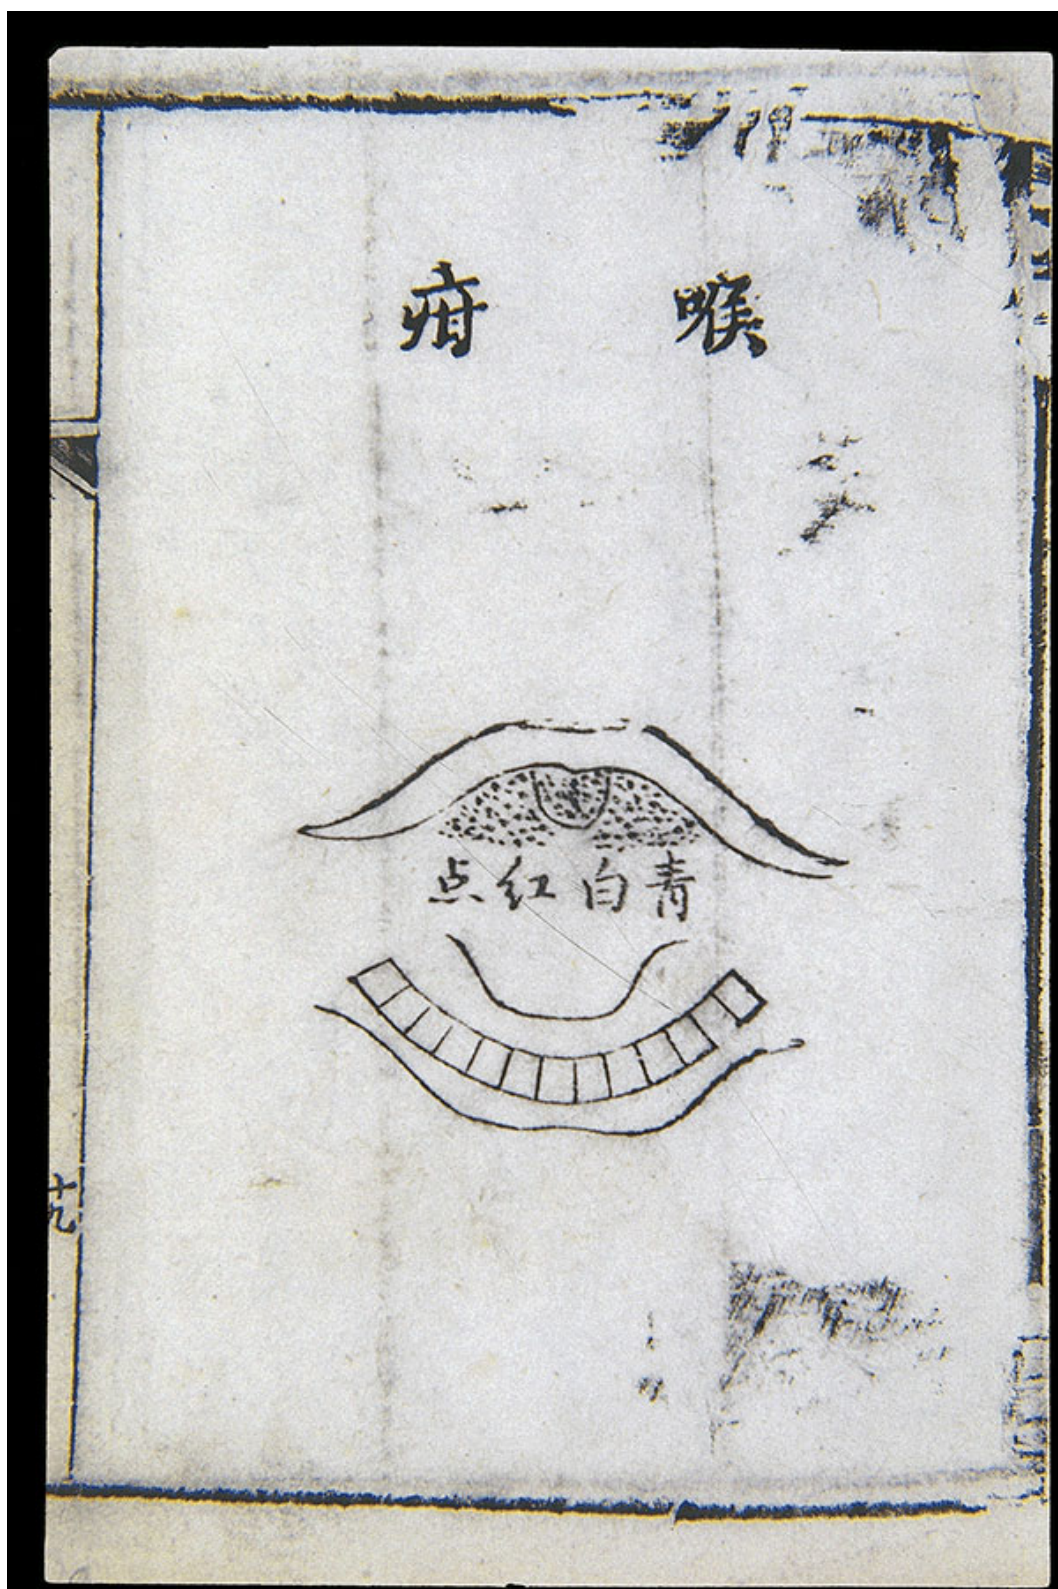 喉疳
青白红点
十九